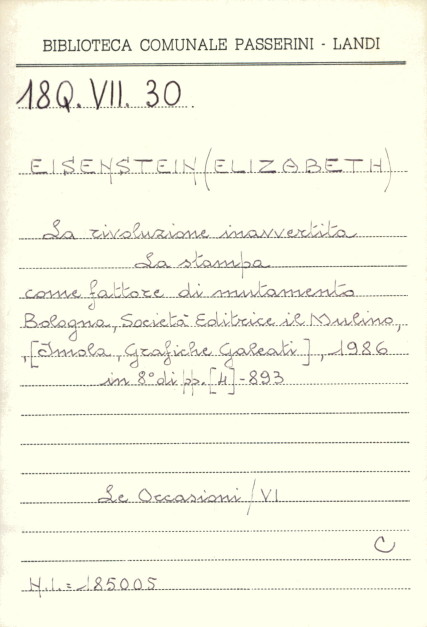 BIBLIOTECA COMUNALE PASSERINI - LANDI
18Q. VII. 30.
EISENSTEIN (ELIZABETH)
La rivoluzione inavvertita
La stampa
come fattore di mutamento
Bologna, Società Editrice il Mulino,
,[Imola, Grafiche Galeati], 1986
in 8° di pp. [4]-893
Le Occasioni / VI
C
N.I. = 185005